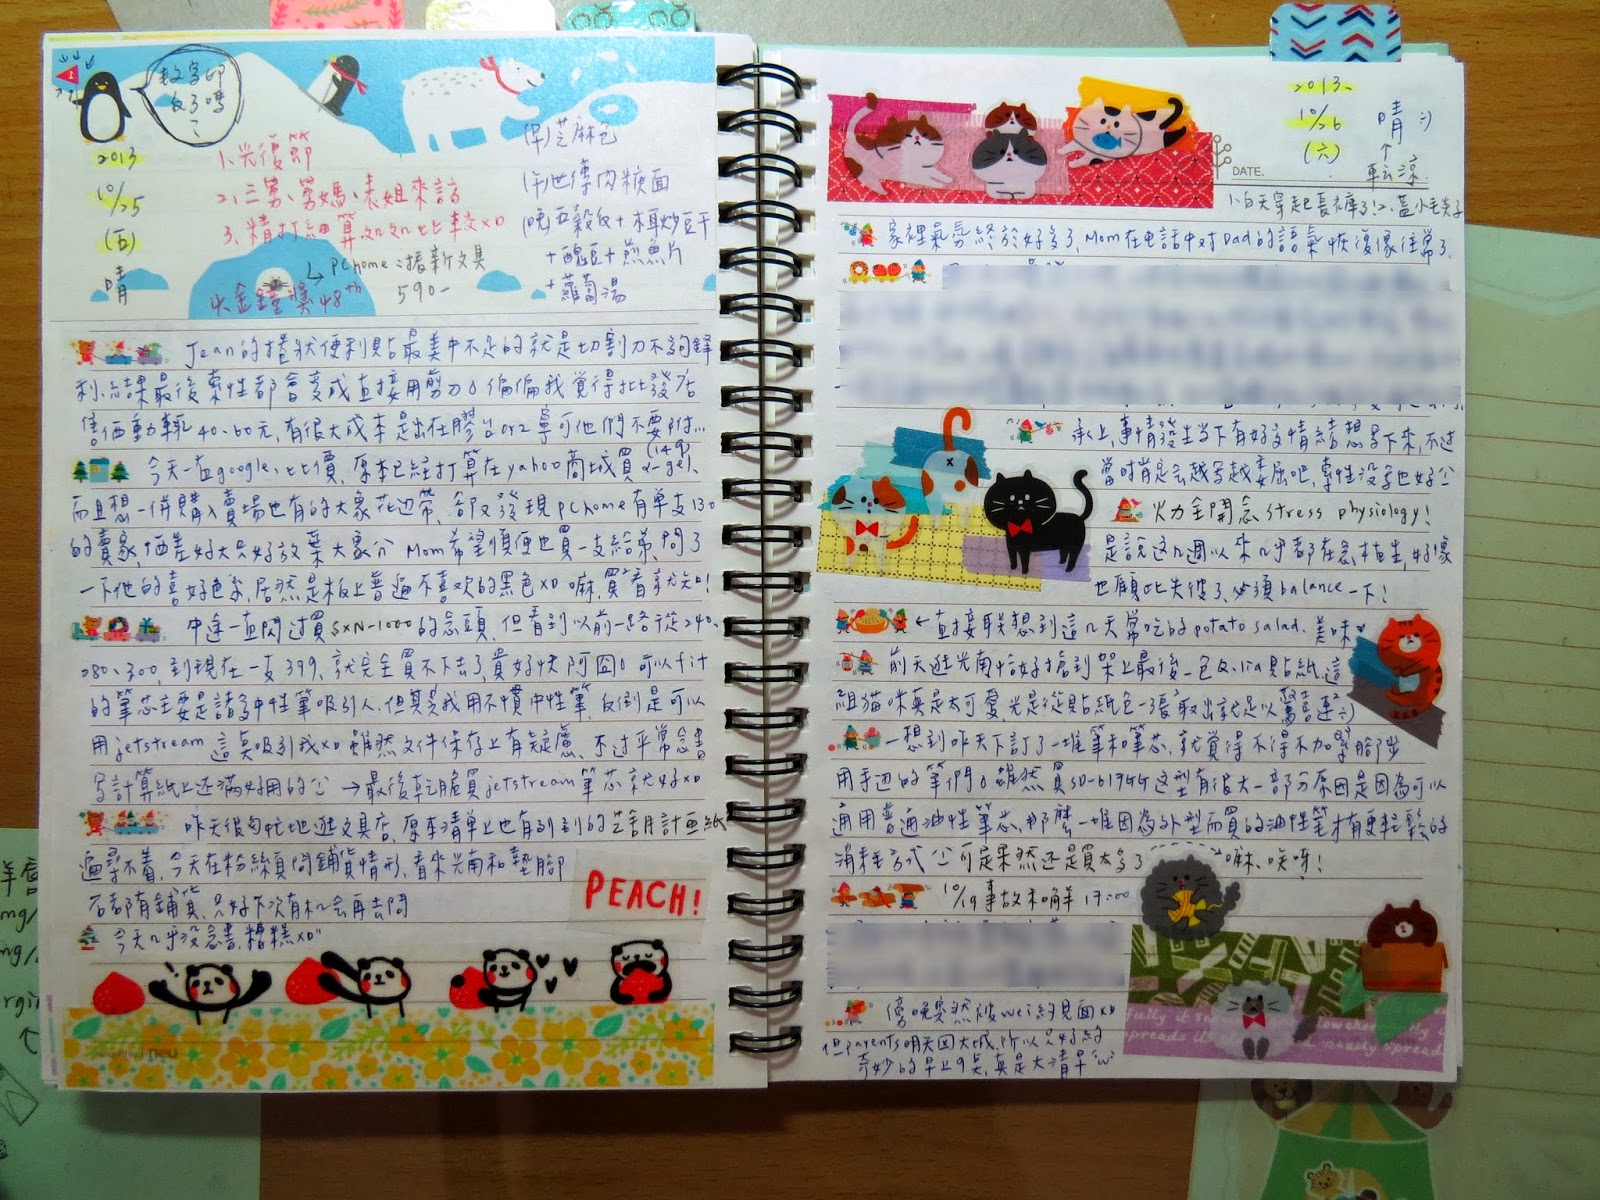 數字印
反了嗎
?
2013
10/25
(五)
晴
1、光復節
2、三舅、舅媽、表姐來訪
3、精打細算比比比較XD
↳ PChome:搶新文具
590-
4、金鐘獎48th
(早)芝麻包
(午)世傳肉燥面
(晚)五穀飯+木耳炒豆干
+醜豆+煎魚片
+蘿蔔湯
Jean的捲狀便利貼最美中不足的就是切割刀不夠鋒
利、結果最後索性都會變成直接用剪刀。偏偏我覺得批發店
售價動輒40、60元,有很大成本是出在膠台orz寧可他們不要附...
今天一直google、比價,原本已經打算在yahoo商城買(149)α-gel、
而且想一併購入賣場也有的大象花边帶,卻又發現PChome有單支130
的賣家,価差好大只好放棄大象 Mom希望順便也買一支給弟,問了
一下他的喜好色系,居然是板上普遍不喜欢的黑色XD嘛,買²看就知!
中途一直閃过買SXN-1000的念頭,但看到以前一路從240、
280、300,到現在一支399,就完全買不下去了,貴好快阿囧。可以fit
的筆芯主要是諸多中性筆吸引人,但其實我用不慣中性筆,反倒是可以
用jetstream這真吸引我XD雖然文件保存上有疑慮,不过平常念書
写計算紙上还滿好用的 →最後乾脆買jetstream筆芯就好XD
昨天很匆忙地逛文具店,原本清單上也有列到的芝月計画紙
遍尋不着,今天在粉絲頁問鋪貨情形,看來光南和墊腳
石都有鋪貨,只好下次有机会再去問
今天几乎没念書,糟糕XD"
PEACH!
neu
2013
10/26
(六)
晴 :)
↑
転涼
DATE.
1、白天穿起長褲了!2、藍小毛夾子
家裡氣氛終於好多了,Mom在电話中对Dad的語氣恢復像往常了、
承上,事情發生当下有好多情緒想写下來,不过
當時肯定会越写越委屈吧,索性没写也好
火力全開念stress physiology!
是說这几週以來几乎都在念植生,好像
也顧此失彼了,必須balance一下!
←直接联想到這几天常吃的potato salad、美味♥
前天逛光南恰好搶到架上最後一包Aylia貼紙,這
組猫咪真是太可愛,光是從貼紙包一張張取出就足以驚喜連²:)
一想到昨天下訂了一堆筆和筆芯,就覺得不得不加緊腳步
用手边的筆們。雖然買SD-617GG这型有很大一部分原因是因為可以
適用普通油性筆芯,那麼一堆因為外型而買的油性筆才有更輕鬆的
消耗方式 可是果然还是買太多了 嘛、唉呀!
10/19事故未解 17:00
傍晚突然被Wei約見面XD
但parents明天回大城,所以只好約
奇妙的早上9点,真是大清早